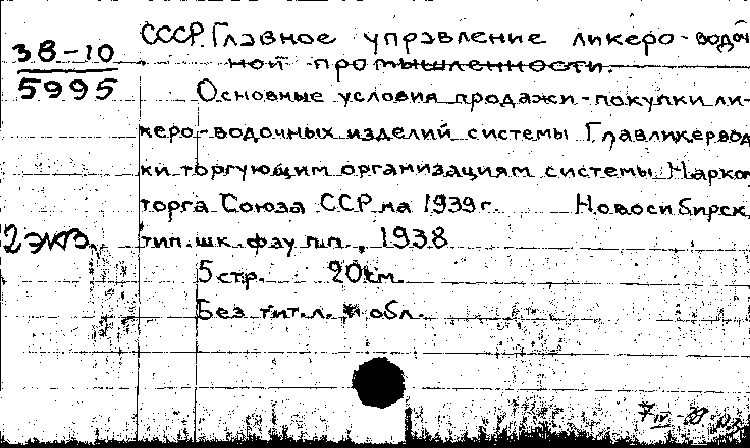 38-10
5995
СССР. Главное управление ликеро-водоч
ной промышленности.
Основные условия продажи-покупки ли-
керо-водочных изделий системы Главликервод
ки торгующим организациям системы Нарком
торга Союза ССР на 1939 г. Новосибирск,
2 экз. тип. шк. фзу п.п., 1938
5 стр. 20 см.
Без тит. л. и обл.